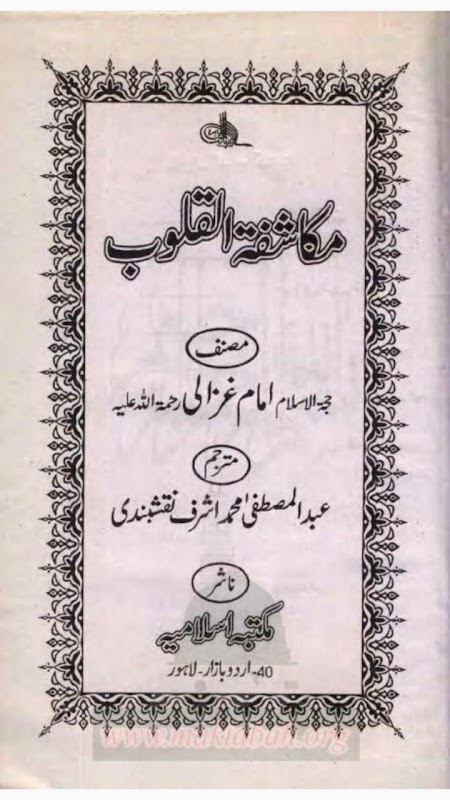 مکاشفۃ القلوب
مصنف
حجۃ الاسلام امام غزالی رحمۃ اللہ علیہ
مترجم
عبد المصطفیٰ محمد اشرف نقشبندی
ناشر
مکتبہ اسلامیہ
40-اردو بازار-لاہور
www.maktabah.org